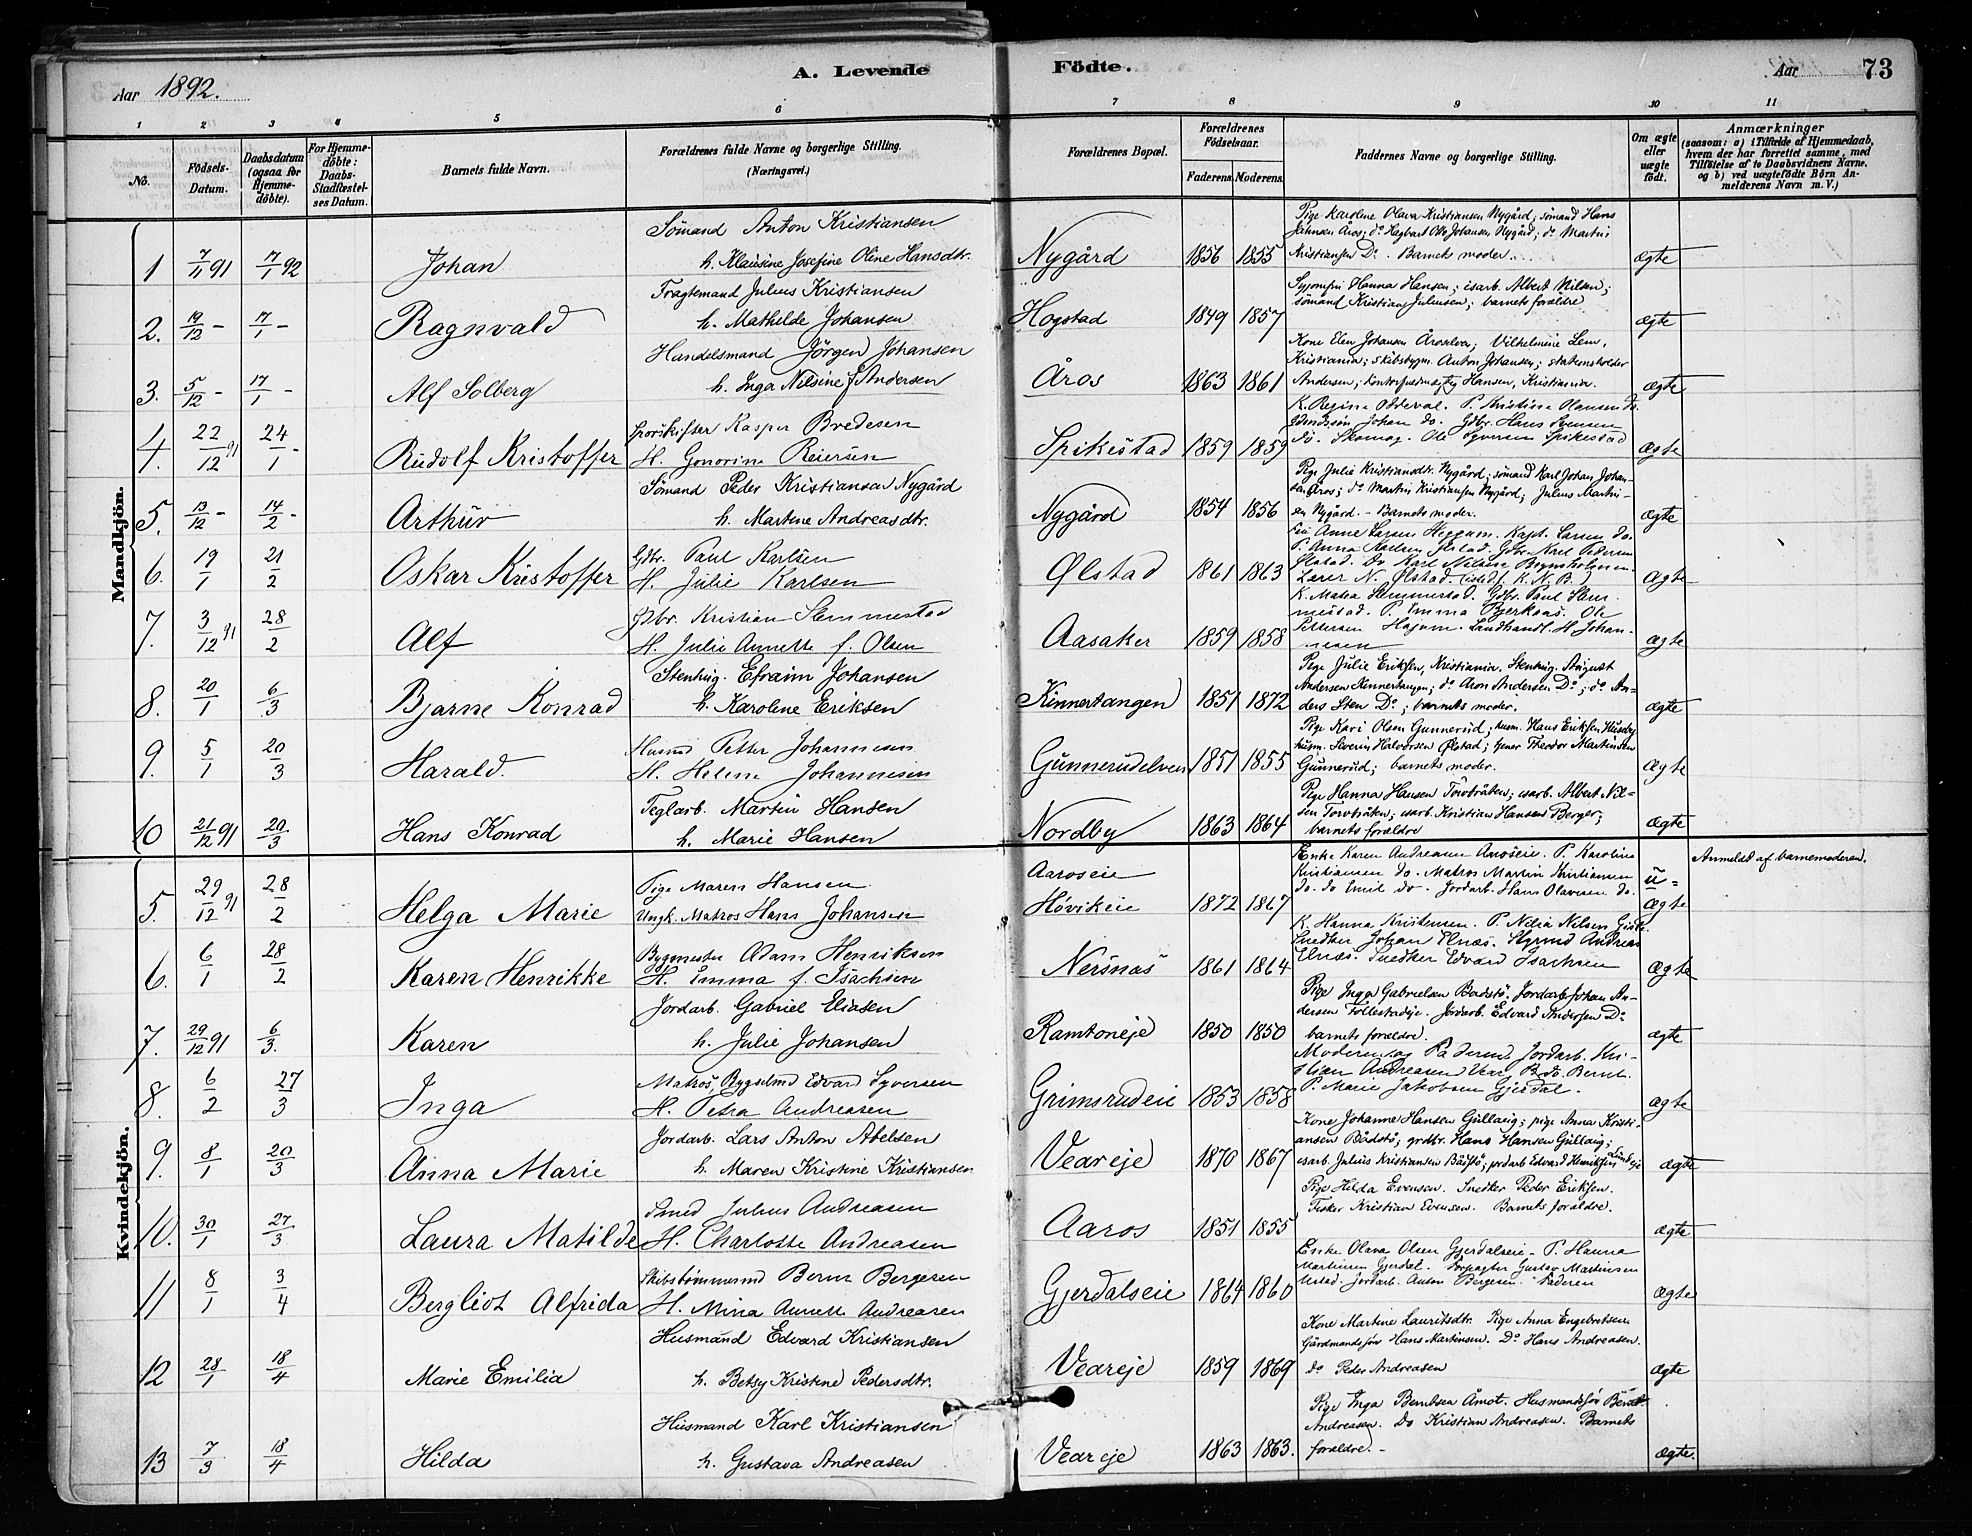 Aar 1892.
A. Levende
Födte.
Aar 73
1 2 3 4 5 6 7 8 9 10 11
No.
Födsels-Datum.
Daabsdatum (ogsaa for Hjemmedöbte).
For Hjemmedöbte: Daabs-Stadfæstelses Datum.
Barnets fulde Navn.
Forældrenes fulde Navne og borgerlige Stilling. (Næringsvei.)
Forældrenes Bopæl.
Forældrenes Födselsaar.
Faderens. Moderens.
Faddernes Navne og borgerlige Stilling.
Om ægte eller uægte födt.
Anmærkninger
(saasom: a) i Tilfælde af Hjemmedaab, hvem der har forrettet samme, med Tilföielse af to Daabsvidners Navne. og b) ved uægtefödte Börn Anmelderens Navn m. V.)
Mandkjön.
Sömand Anton Kristiansen
Pige Karoline Olava Kristiansen Nygård; sömand Hans
Johnsen Åros; do Hagbart Otto Johansen Nygård; do Martin
1 7/11 91 17/1 92 Johan h. Klausine Josefine Oline Hansdtr. Nygård 1856 1855 Kristiansen Do. Barnets moder. ægte
Fragtemand Julius Kristiansen
Syjomfru Hanna Hansen; isarb. Albert Nilsen;
sömand Kristian Juliussen; barnets forældre
2. 19/12 - 17/1 - Ragnvald h. Mathilde Johansen Hogstad 1849 1857 ægte
Handelsmand Jörgen Johansen
Kone Elen Johansen Åroselven; Vilhelmine Lem,
Kristiania; skibsbygm. Anton Johansen; stationsholder
3. 5/12 - 17/1 - Alf Solberg h. Inga Nilsine f. Andersen Åros 1863 1861 Andersen; kontorfuldmægtig Hansen, Kristiania. ægte
K. Regine Oddeval. P. Kristine Olausen do.
Kasper Bredesen
Johan do. Gdbr. Hans Svensen
4. 22/12 91 24/1 - Rudolf Kristoffer H. Gonorine Reiersen Spikestad 1859 1859 do. Skomag. Ole Syversen Spikestad ægte
Sömand Peder Kristiansen Nygård
Pige Julie Kristiansdtr. Nygård; sömand Karl Johan Johan-
sen Åros; do Martin Kristiansen Nygård; Julius Martin-
5. 13/12 - 14/2 - Arthur h. Martene Andreasdtr. Nygård 1854 1856 sen Nygård. - Barnets moder. ægte
Gdbr. Paul Karlsen
Fru Anne Larsen Heggum. Kapt. Larsen do.
P. Anna Karlsen Ølstad. Gdbr. Karl Pedersen
6. 19/1 21/2 Oskar Kristoffer H. Julie Karlsen Ølstad 1861 1863 Ølstad. Do Karl Nilsen
Lærer N. Ølstad. (istedf. K. N. B.) ægte
Gdbr. Kristian Slemmestad
K. Matea Slemmestad. Gdbr. Paul Slem-
mestad. P. Emma Bjerkaas. Ole
7. 3/12 91 28/2 Alf H. Julie Annette f. Olsen Aasaker 1859 1858 Pettersen Højum. Landhandl. H Johan-
nesen ægte
Stenhug. Efraim Johansen
Pige Julie Eriksen, Kristiania. Stenhug. August
Andersen Kinnertangen; do Aron Andersen Do; do An-
8. 20/1 6/3 Bjarne Konrad h. Karoline Eriksen Kinnertangen 1851 1872 ders Sten Do; barnets moder. ægte
Husmd Petter Johannesen
Pige Kari Olsen Gunnerud; husm. Hans Eriksen Huseby
husm. Severin Halvorsen Ølstad; tjener Theodor Martinsen
9. 5/1 20/3 Harald. H. Helene Johannesen Gunnerudelven 1851 1855 Gunnerud; barnets moder. Ægte
Teglarb. Martin Hansen
Pige Hanna Hansen Torvbråten; isarb. Albert Nil-
sen Torvbråten; isarb. Kristian Hansen Berger;
10 21/12 91 20/3 Hans Konrad h. Marie Hansen Nordby 1863 1864 barnets forældre ægte
Kvindekjön.
Pige Maren Hansen Aaroseie
Enke Karen Andreasen Aaroseie. P. Karoline
Kristiansen do. Matros Martin Kristiansen
Anmeldt af barnemoderen.
5. 29/12 91 28/2 Helga Marie Ungk. Matros Hans Johansen Hövikeie 1872 1867 do. do Emil do. Jordarb. Hans Olavesen do. u-ægte
Bygmester Adam Henriksen
K. Hanna Kristensen. P. Nilia Nilsen
Snedker Johan Elnæs. Styrmd Andreas
6. 6/1 28/2 Karen Henrikke H. Emma f. Isachsen Nersnæs 1861 1864 Elnæs. Snedker Edvard Isachsen Ægte
Jordarb. Gabriel Eliasen
Pige Inga Gabrielsen Badstö. Jordarb. Johan An-
dersen Föllestadeje. Jordarb. Edvard Andersen Do
7. 29/12 91 6/3. Karen h. Julie Johansen Ramtoneje 1850 1850 barnets forældre. ægte
Matros, Bygselmd Edvard Syversen
Moderen og Faderen. Jordarb. Kri-
stian Andreasen Vear. Bernt
8. 6/2 27/3 Inga H. Petra Andreasen Grimsrudeie 1853 1858 P. Marie Jakobsen Gjerdal. ægte
Jordarb. Lars Anton Abelsen
Kone Johanne Hansen Gullaug; pige Anna Kristi-
ansen Bådstö; grdbr. Hans Hansen Gullaug;
9. 8/1 20/3 Anna Marie h. Maren Kristine Kristiansen Veareje 1870 1867 isarb. Julius Kristiansen Bådstö; jordarb Edvard Henriksen Lindeje ægte
Smed Julius Andreasen
Pige Hilda Evensen. Snedker Peder Eriksen.
Fisker Kristian Evensen. Barnets forældre.
10. 30/1 27/3 Laura Matilde H. Charlotte Andreasen Aaros 1851 1855 ægte
Skibstömmermd Bernt Bergersen
Enke Olava Olsen Gjerdalseie. P. Hanna
Martinsen Gjerdal. Forpagter Gustav Martinsen
11 8/1 3/4 Bergliot Alfrida H. Mina Annette Andreasen Gjerdalseie 1864 1860 Ustad. Jordarb. Anton Bergesen. Faderen Ægte
Husmand Edvard Kristiansen
Kone Martine Lauritsdtr. Pige Anna Engebretsen
Gårdmandssön Hans Martinsen. Do Hans Andreasen.
12 28/1 18/4 Marie Emilia h. Betsy Kristine Pedersdtr. Veareje 1859 1869 do Peder Andreasen ægte
Husmand Karl Kristiansen
Pige Inga Berntsen Åmot. Husmandssön Bernt
Andreasen. Do Kristian Andreasen. Barnets
13 7/3 18/4 Hilda h. Gustava Andreasen Veareje 1863 1863. forældre. - ægte.